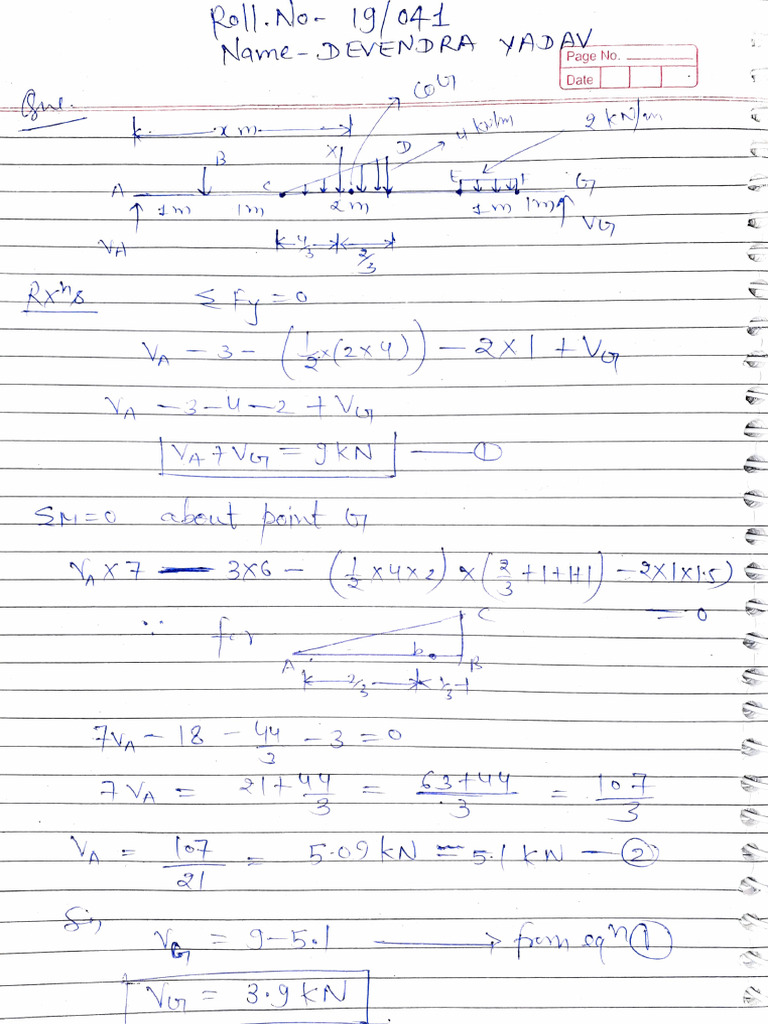 Roll.No- 19/041
Name- DEVENDRA YADAV
Page No.
Date
Que.
COG
x m
B
X
D
4 kN/m
2 kN/m
A
C
E
F
G
1m
1m
2m
1m
1m
VA
VG
4/3
2/3
Rxns
ΣFy = 0
VA - 3 - (1/2 × (2×4)) - 2×1 + VG
VA - 3 - 4 - 2 + VG
VA + VG = 9 kN —— ①
ΣM=0 about point G
VA × 7 — 3×6 - (1/2 ×4×2) × (2/3 +1+1+1) - 2×1×1.5)
= 0
∵ for
C
A
B
2/3
1/3
7VA - 18 - 44/3 - 3 = 0
7VA = 21 + 44/3 = 63+44/3 = 107/3
VA = 107/21 = 5.09 kN = 5.1 kN — ②
So,
VG = 9 - 5.1 ——→ from eqn ①
VG = 3.9 kN